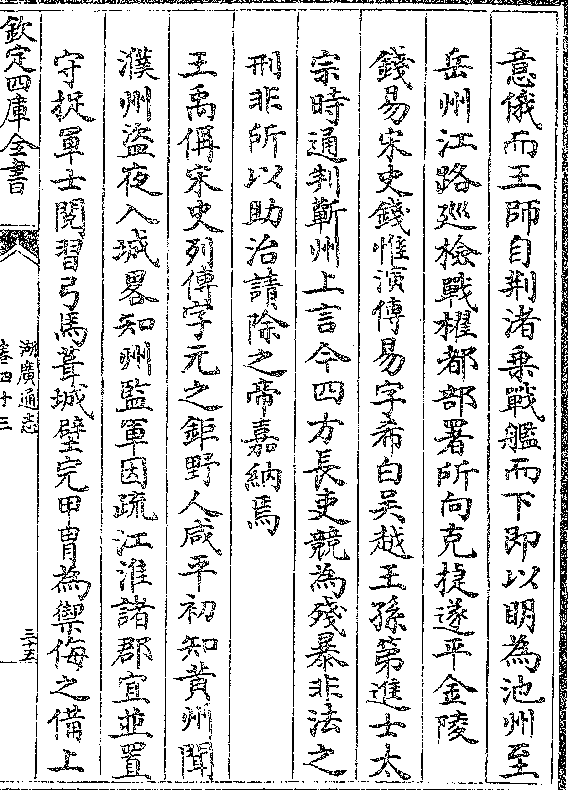 意俄而王師自荆渚乗戰艦而下即以明為池州至
岳州江路廵檢戰櫂都部署所向克捷遂平金陵
錢易宋史錢惟演傳易字希白吴越王孫第進士太
宗時通判蘄州上言今四方長吏競為殘暴非法之
刑非所以助治請除之帝嘉納焉
王禹偁宋史列傳字元之鉅野人咸平初知黄州聞
濮州盜夜入城畧知州監軍因疏江淮諸郡宜並置
守捉軍士閱習弓馬葺城壁完甲胄為禦侮之備上
欽定四庫全書
湖廣通志
卷四十三
三十五